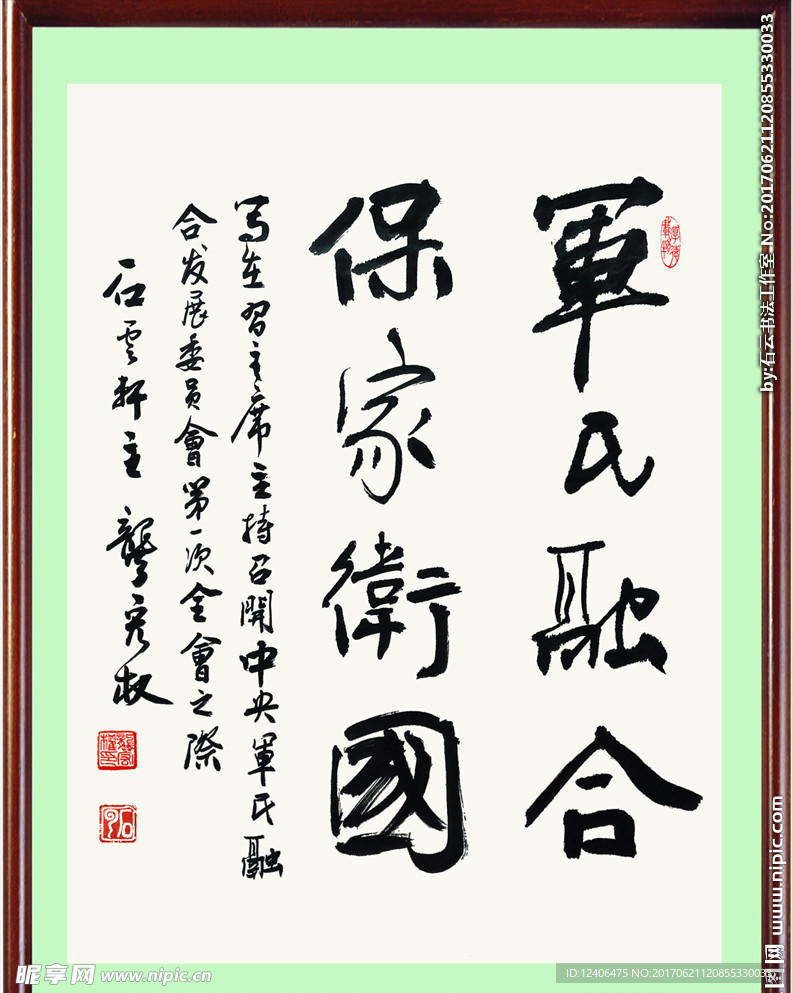 厚德載物
軍民融合
保家衛國
写在習主席主持召開中央軍民融
合发展委員會第一次全會之際
石雲軒主 龔
by:石云书法工作室 No:20170621120855330033
www.nipic.com
昵享网 www.nipic.cn
ID:12406475 NO:20170621120855330033